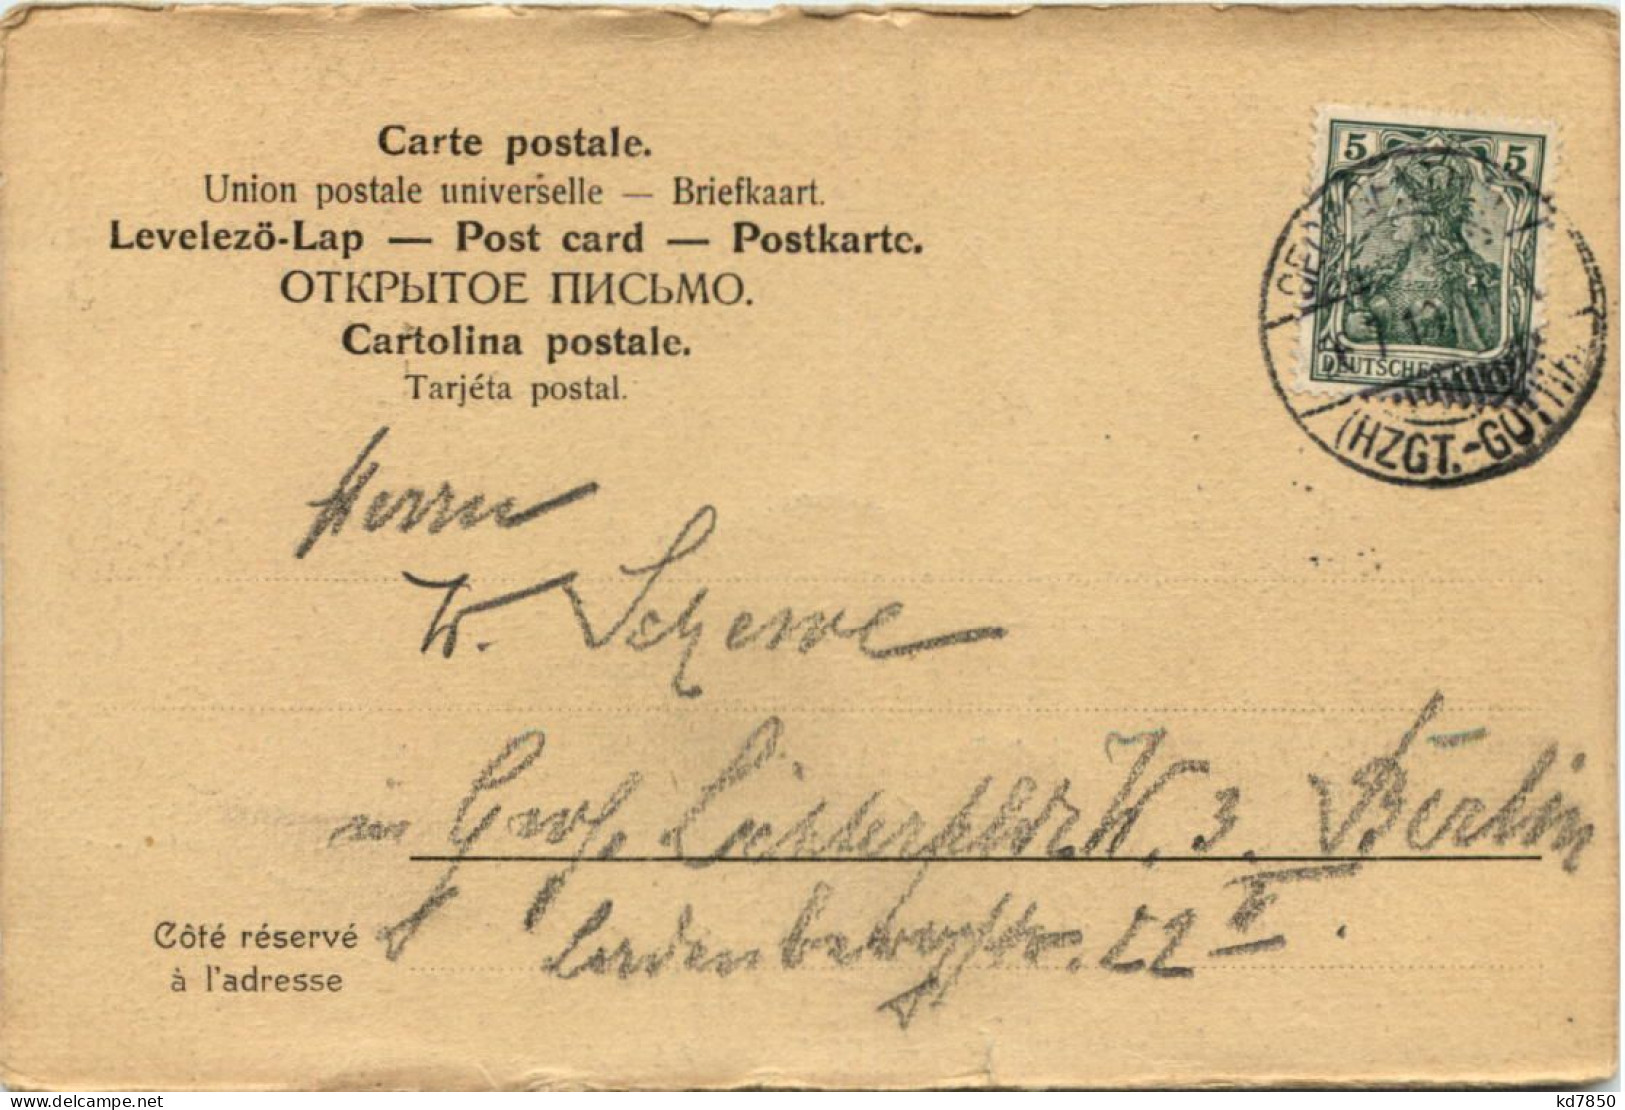 Carte postale.
Union postale universelle — Briefkaart.
Levelezö-Lap — Post card — Postkarte.
ОТКРЫТОЕ ПИСЬМО.
Cartolina postale.
Tarjéta postal.
5 5
DEUTSCHES
(HZGT.-GOTHA)
Herrn
W. Schewe
in Groß Lichterfelde W. 3. Berlin
22 II.
Côté réservé
à l'adresse
kd7850